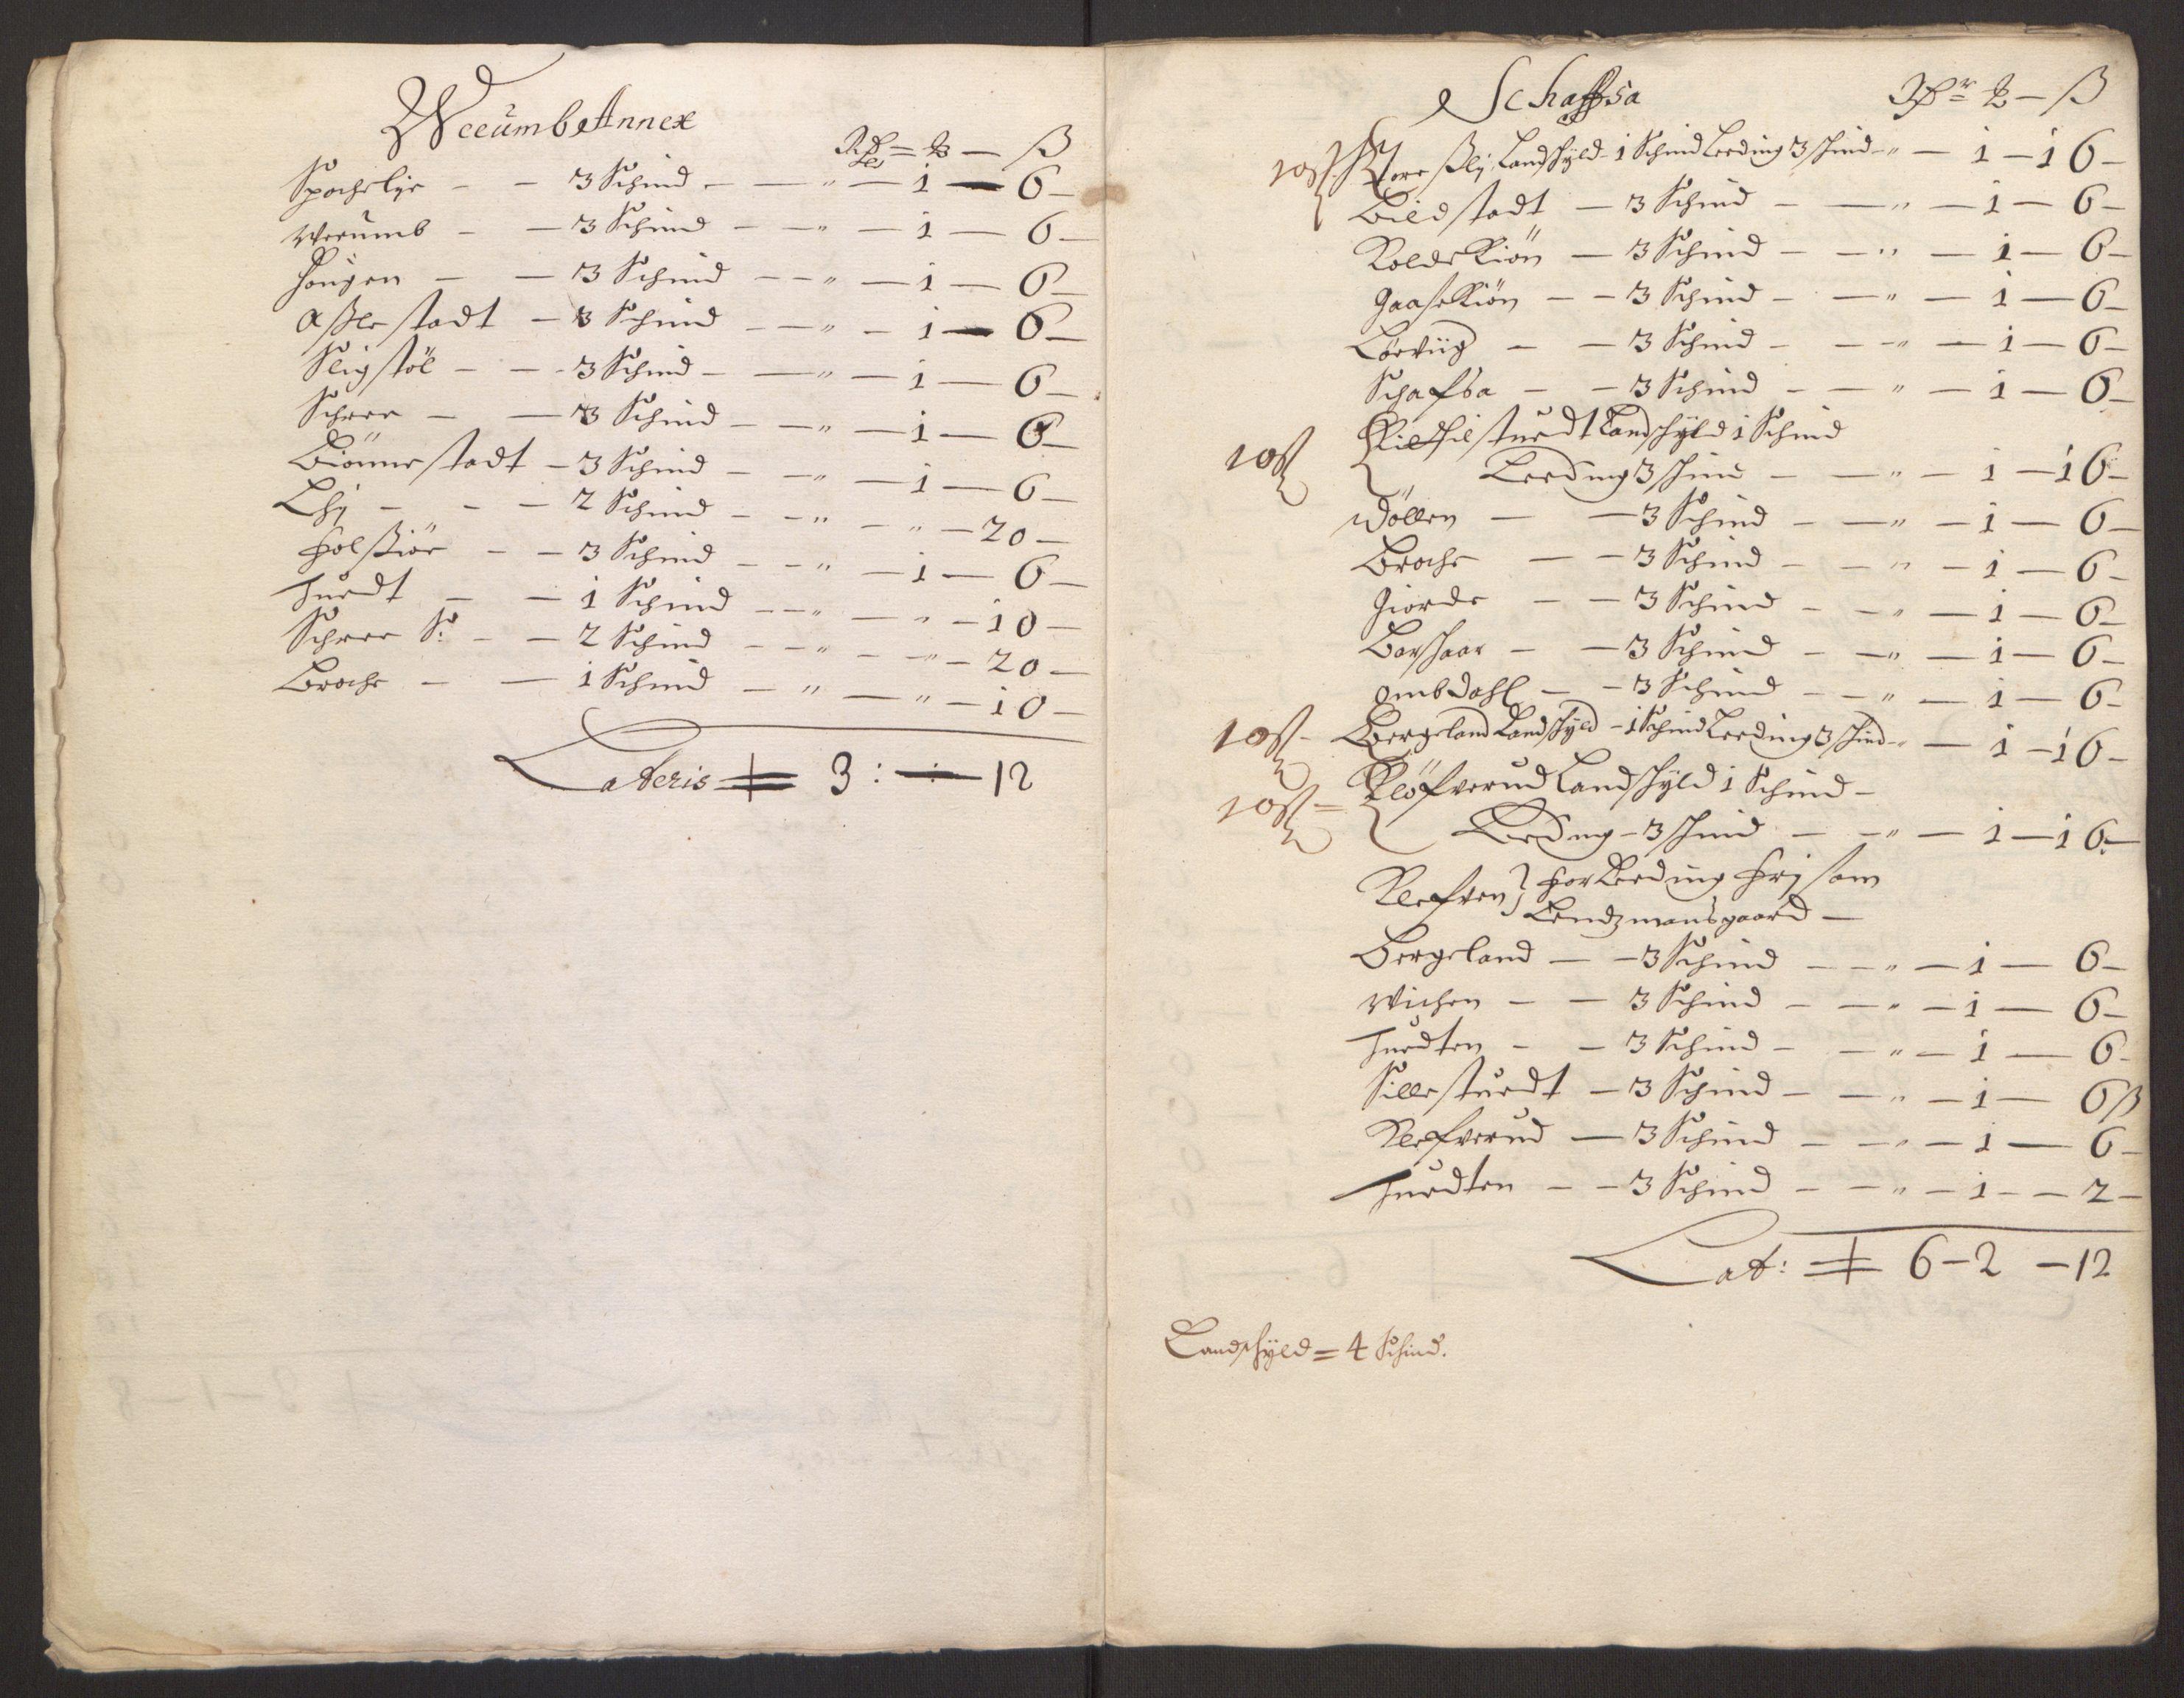 Weeumb Annex
Rdr = ƶ — ß
Spochelye — — 3 Schind — — " — 1 — 6 —
Weeumb — — 3 Schind — — " — 1 — 6 —
Hougen — — 3 Schind — — " — 1 — 6 —
Assle stadt — 3 Schind — — " — 1 — 6 —
Sligstöl — — 3 Schind — — " — 1 — 6 —
Schree — — 3 Schind — — " — 1 — 6 —
Biönnestadt — 3 Schind — — " — 1 — 6 —
Lhj — — — 2 Schind — — " — " — 20 —
Holßiör — — 3 Schind — — " — 1 — 6 —
Tuedt — — 1 Schind — — " — " — 10 —
Schree S: — — 2 Schind — — " — " — 20 —
Broche — — 1 Schind — " — " — 10 —
Lateris 3 : — : — 12
Schaffsa
Rdr = ƶ — ß
10ß Landschyld — 1 Schind Leeding 3 schind — " — 1 — 16 —
Bildstadt — 3 Schind — — " — 1 — 6 —
Kolde Kiön — 3 Schind — — " — 1 — 6 —
Gaase Kiön — — 3 Schind — — " — 1 — 6 —
Lörviig — — 3 Schind — — " — 1 — 6 —
Schafsa — — 3 Schind — — " — 1 — 6 —
10ß Kilthilstuedt Landschyld 1 Schind
Leeding 3 schind — — " — 1 — 16 —
Döllen — — 3 Schind — — " — 1 — 6 —
Broche — — 3 Schind — — " — 1 — 6 —
Giorde — — 3 Schind — — " — 1 — 6 —
Barschaar — — 3 Schind — — " — 1 — 6 —
Ombdahl — — 3 Schind — — " — 1 — 6 —
10ß — Bergeland Landschyld — 1 Schind Leeding 3 schind — " — 1 — 16 —
10ß = Klöfverud Landschyld 1 Schind —
Leeding — 3 schind — — " — 1 — 16 —
Klefven } for Leeding frj som
Lendzmansgaard —
Bergeland — — 3 Schind — — " — 1 — 6 —
Wichen — — 3 Schind — — " — 1 — 6 —
Tuedten — — 3 Schind — — " — 1 — 6 —
Sillestuedt — 3 Schind — — " — 1 — 6 ß
Klefverud — 3 Schind — — " — 1 — 6 —
Tuedten — — 3 Schind — — " — 1 — — 2 —
Lat: 6 — 2 — 12
Landschyld = 4 Schind.